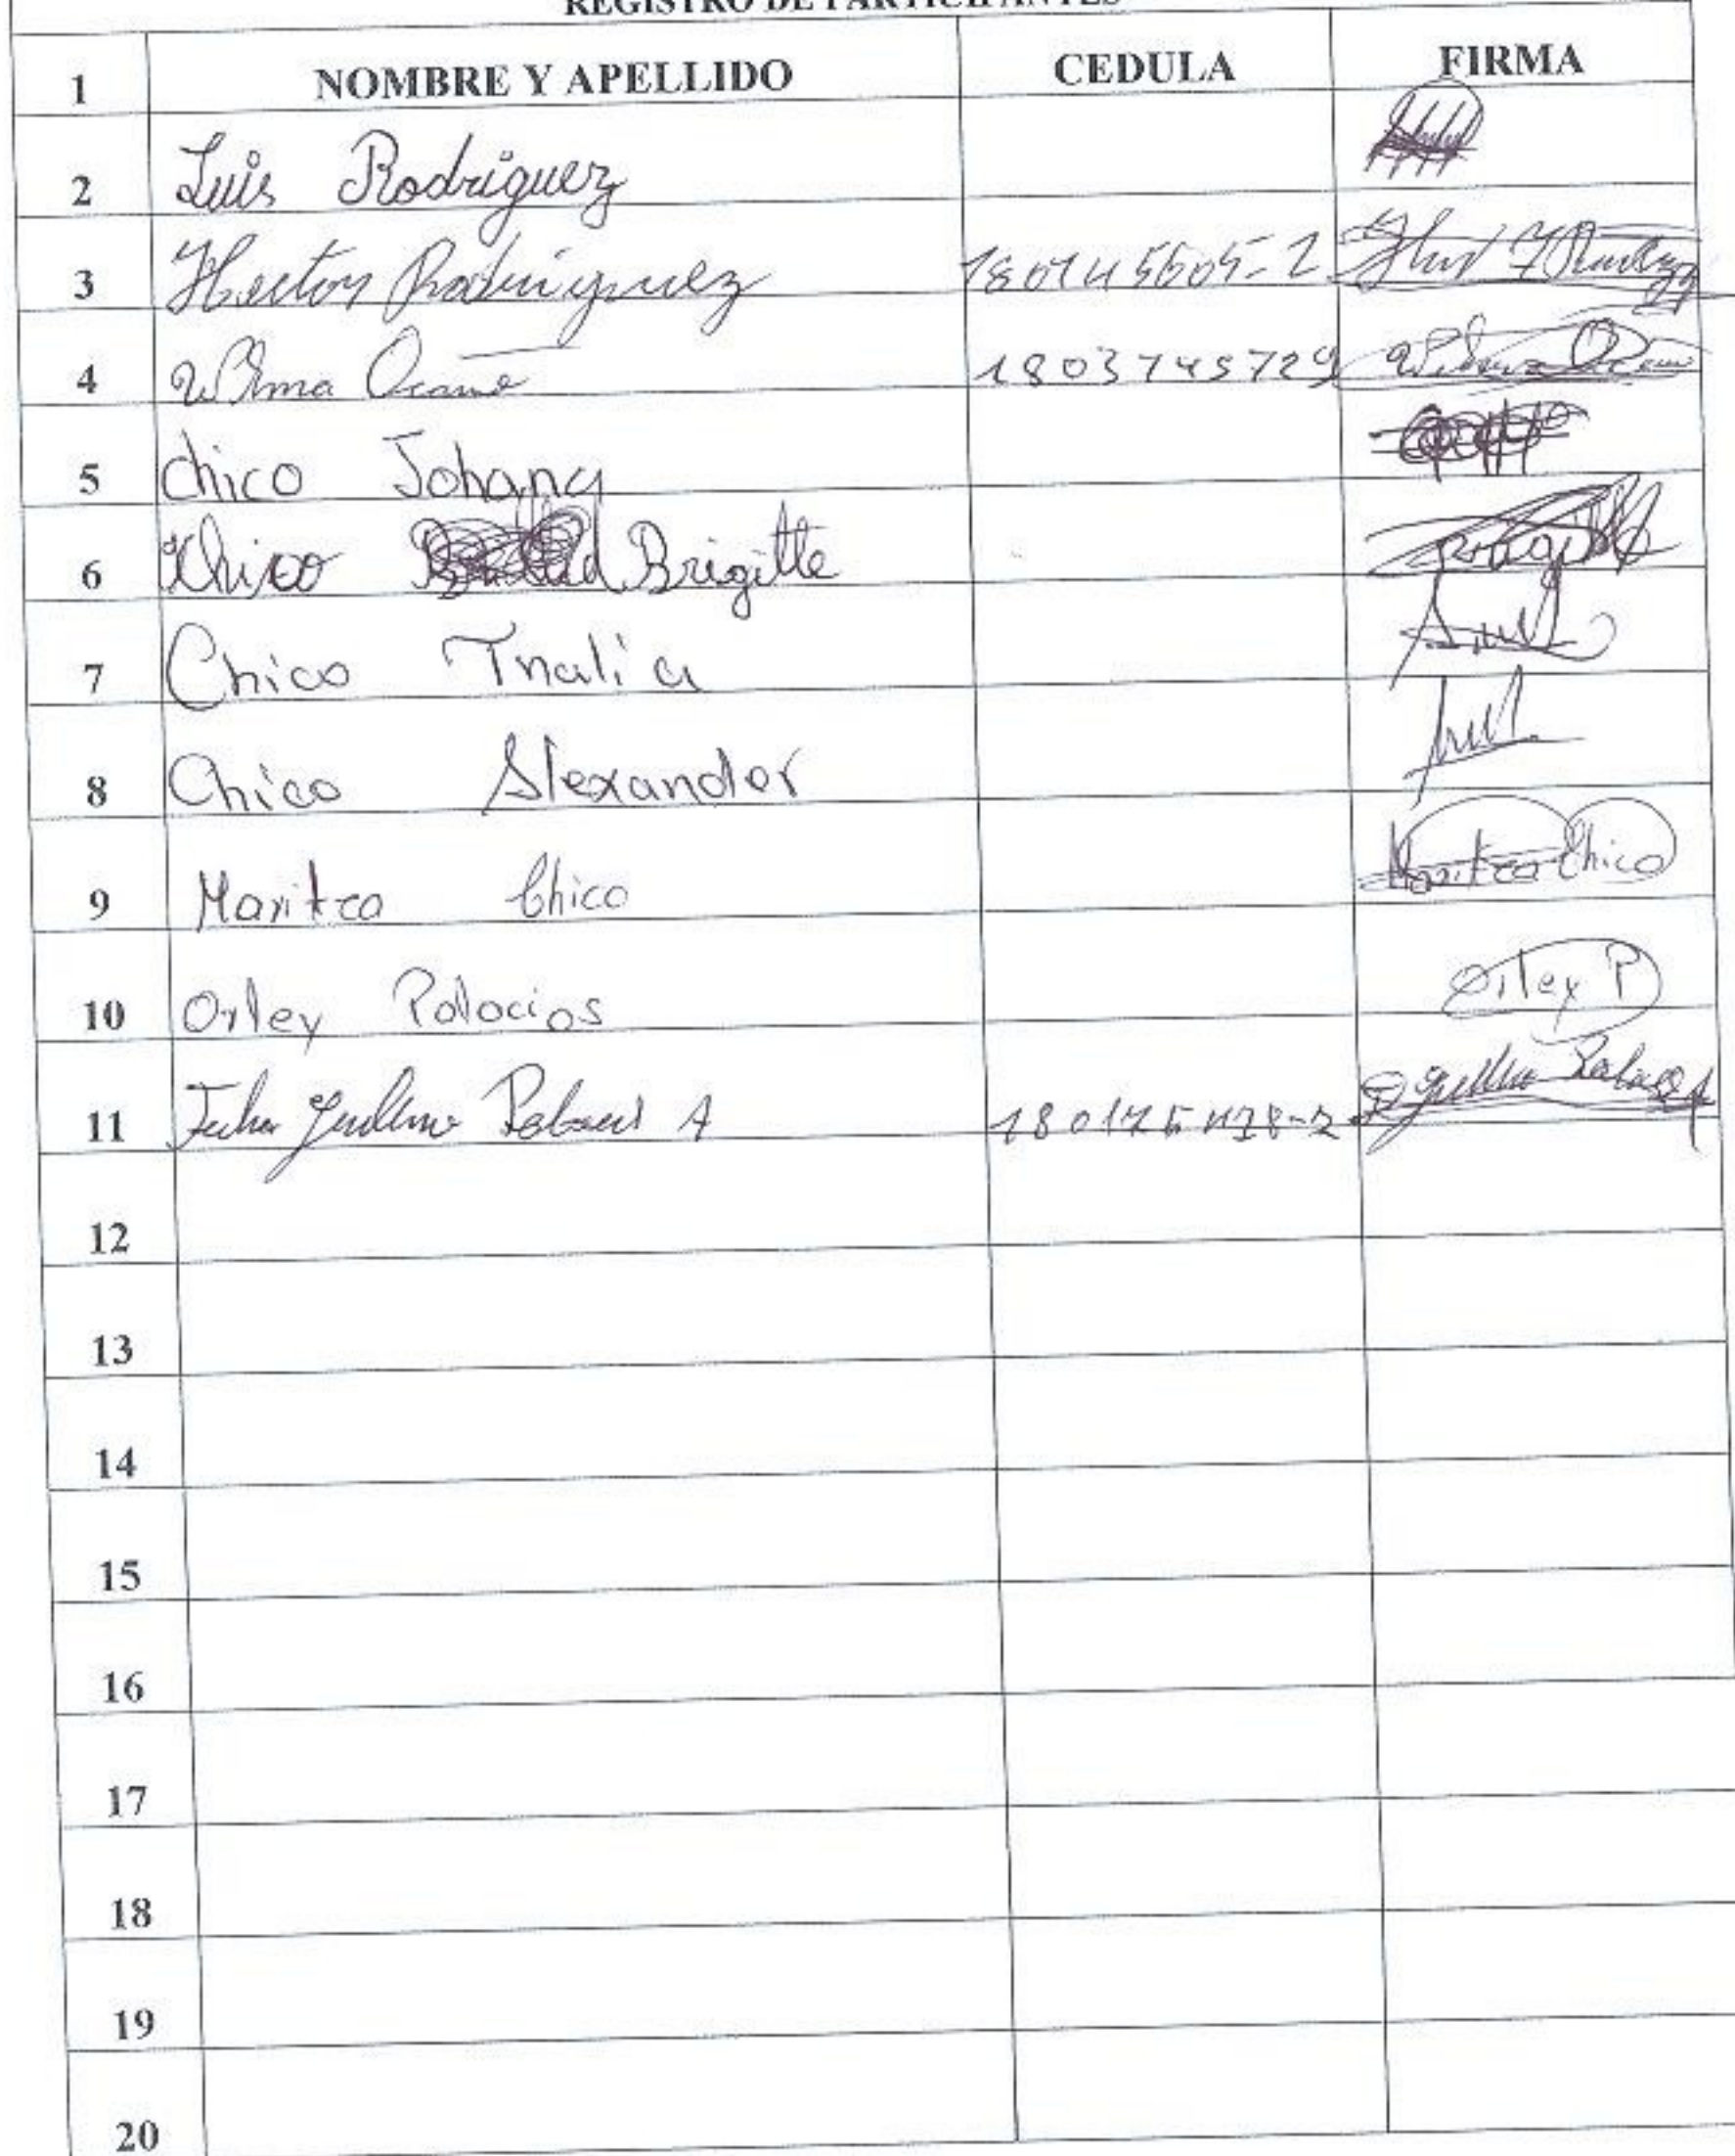 REGISTRO DE PARTICIPANTES
1 NOMBRE Y APELLIDO CEDULA FIRMA
2 Luis Rodriguez
3 Hector Rodriguez
4 Wilma Ocaña 1803745729
5 Chico Johana
6 Chico Brigitte Brigitte
7 Chico Thalia
8 Chico Alexander
9 Maritza Chico Maritza Chico
10 Orley Palacios Orley P
11 Guillermo Palacios A
12
13
14
15
16
17
18
19
20